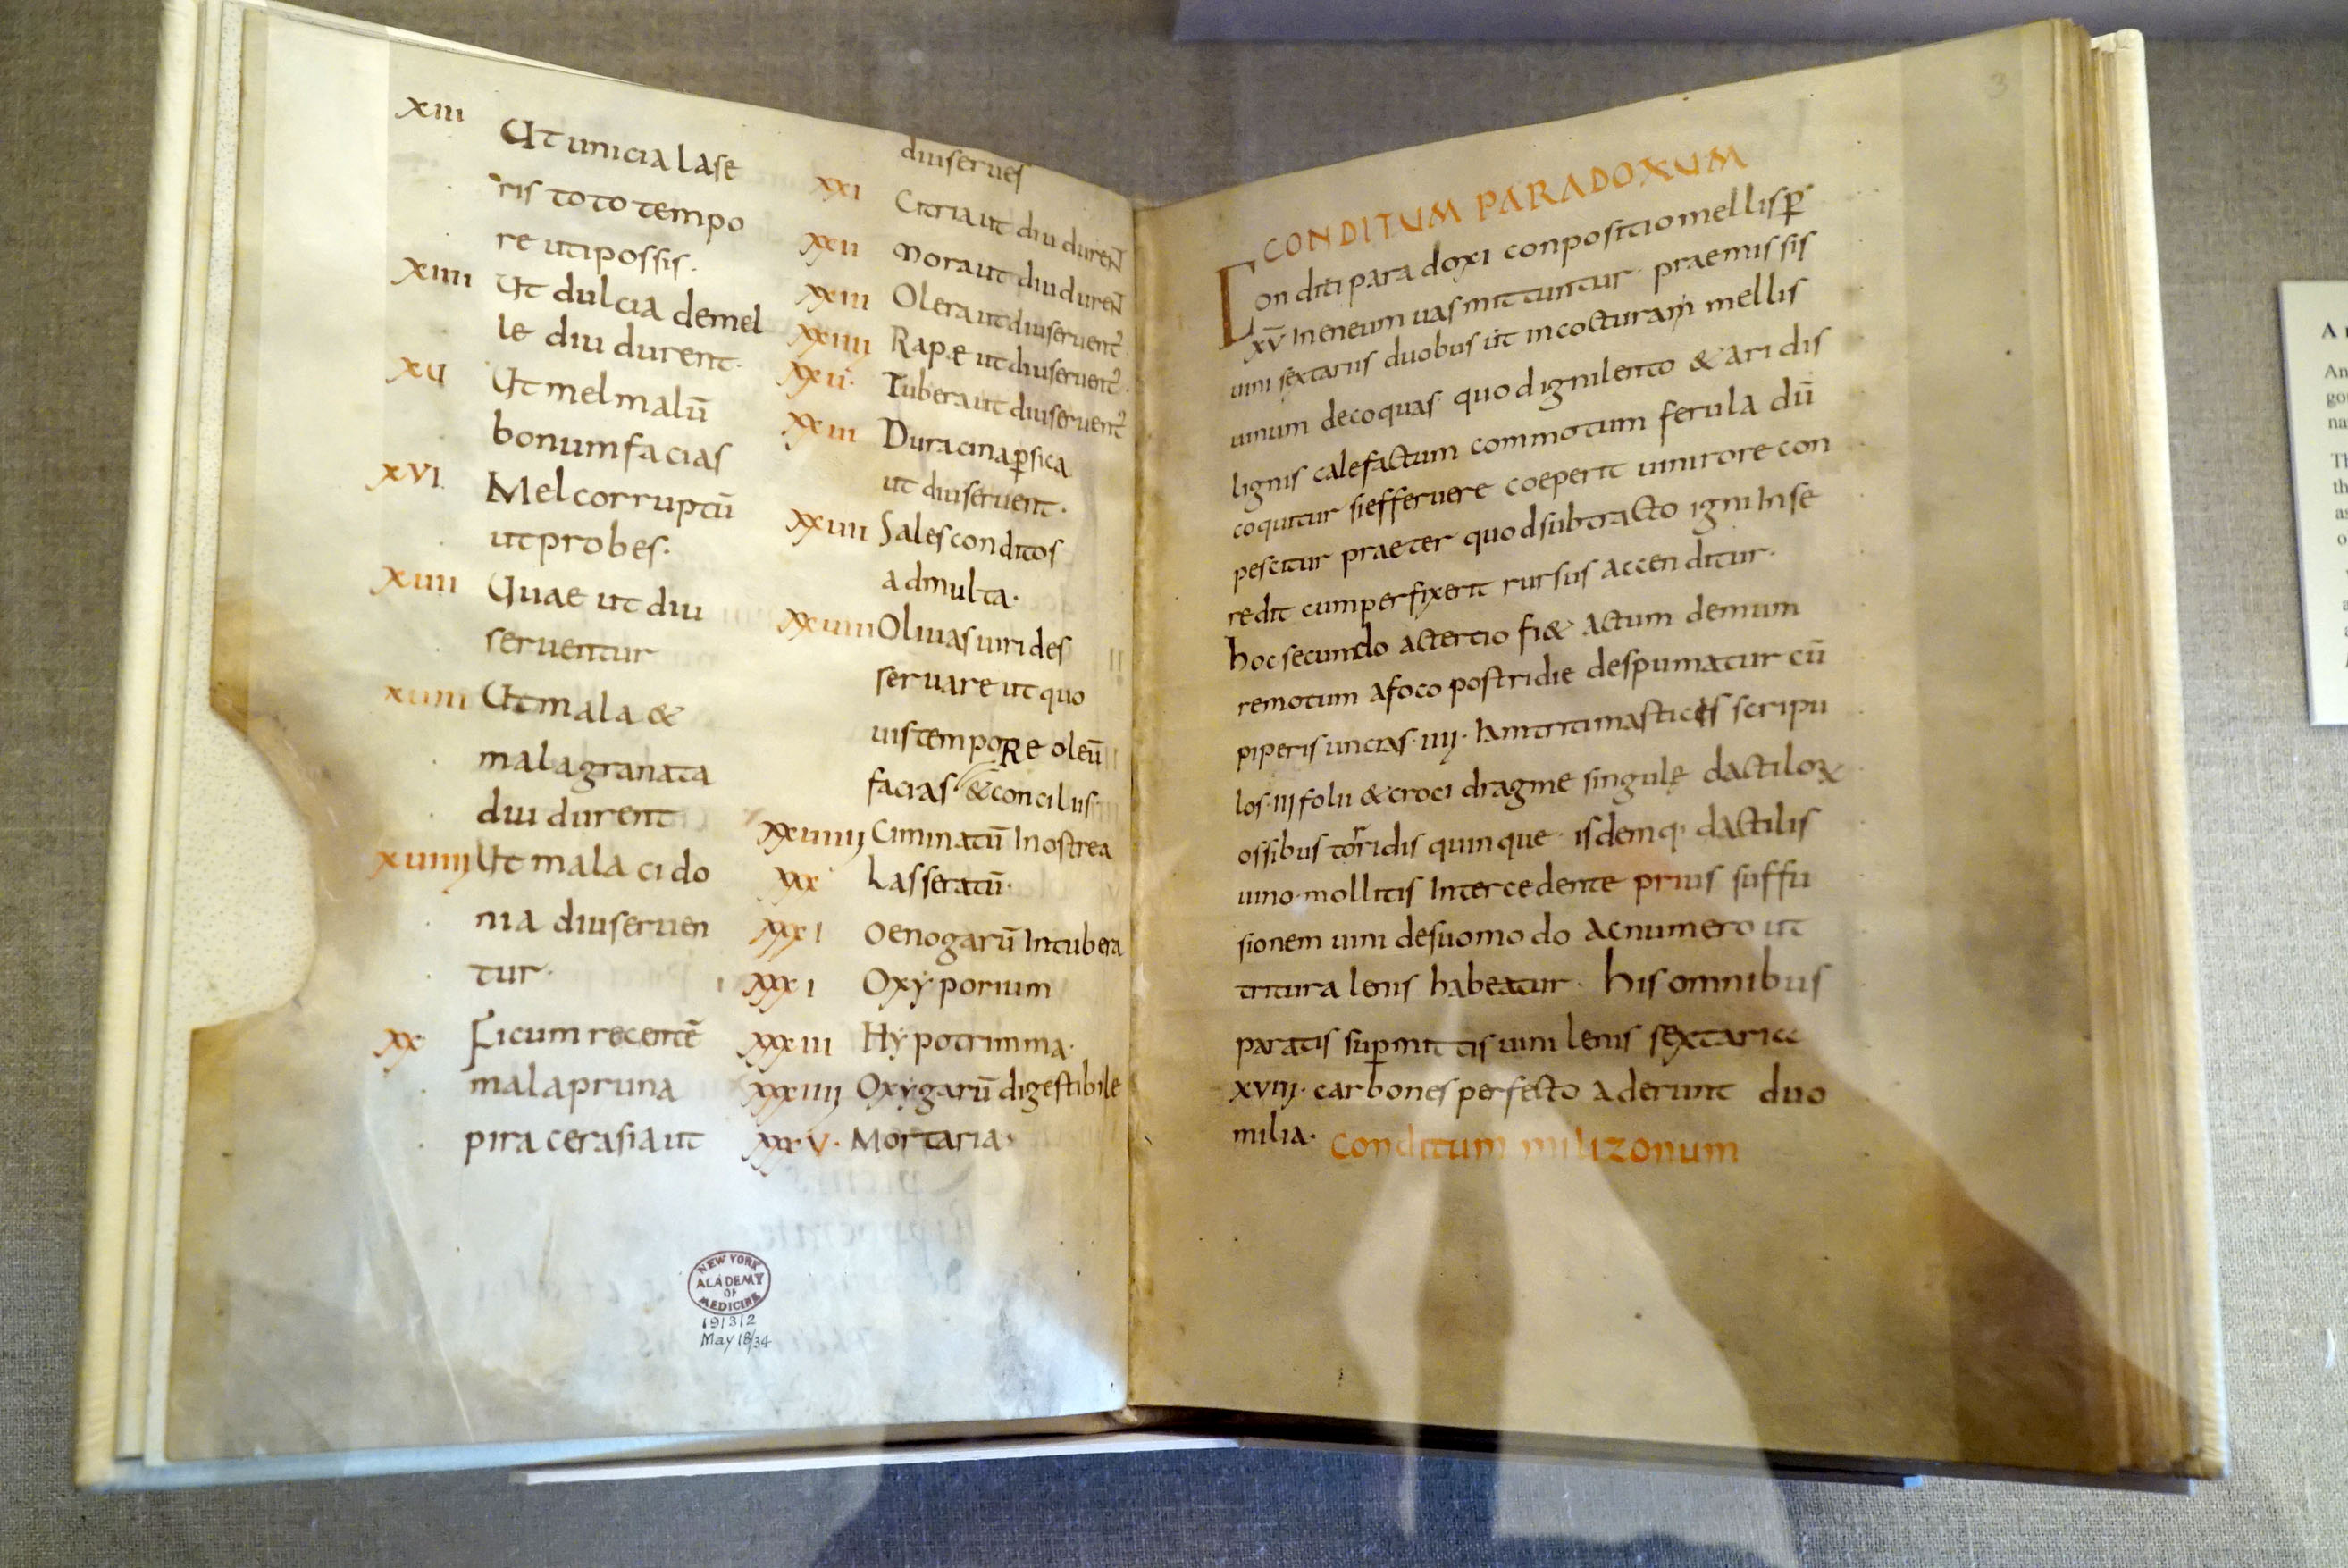 xiii
Ut uncia lase
ris toto tempo
re uti possis.
xiiii
Ut dulcia demel
le diu durent.
xv
Ut mel malū
bonum facias
xvi.
Mel corruptū
ut probes.
xiiii
Quae ut diu
serventur
xviii
Ut mala &
malagranata
diu durent
xviiii
Ut mala cido
nia diu serven
tur.
xx
Ficum recentē
mala pruna
pira cerasia ut
diu serves
xxi
Citria ut diu dureN̄
xxii
mora ut diu dureN̄
xxiii
Olera ut diu servent᷒
xxiiii
Rapæ ut diu servent᷒
xxii.
Tubera ut diu servent᷒
xxiii
Duracina ꝑsica
ut diu servent.
xxviii
Sales conditos
ad multa.
xxviiii
Olivas virides
servare ut quo
vis tempoRe oleū
facias
&conciliis
xxviiii
Ciminatū In ostrea
xxx
Laseratū.
xxxi
Oenogarū In tubera
xxxi
Oxyporium
xxxiii
Hypotrimma.
xxxiiii
Oxygarū digestibile
xxxv.
Mortaria.
NEW YORK
ACADEMY
OF
MEDICINE
191312
May 18/34
3
CONDITUM PARADOXUM
Conditi paradoxi conpositio mellis ꝑ
xv̄ In eneum vas mittuntur. praemissis
vini sextariis duobus ut in cocturam mellis
vinum decoquas. quod igni lento & aridis
lignis calefactum commotum ferula dū
coquitur si effervere coeperit vini rore con
pescitur praeter quod subtracto igni In se
redit cum perfixerit rursus accenditur.
hoc secundo ac tertio fi& actum demum
remotum a foco postridie despumatur cū
piperis uncias. iiii. Iam triti masticis scripu
los. iii folii & croci dragme singulę dactiloꝝ
ossibus torridis quinque. isdemq. dactilis
vino mollitis Intercedente prius suffu
sionem vini de suo modo ac numero ut
tritura lenis habeatur. his omnibus
paratis suꝑmittis vini lenis sextarice
xviii. carbones perfecto aderunt duo
milia. Conditum milizonum